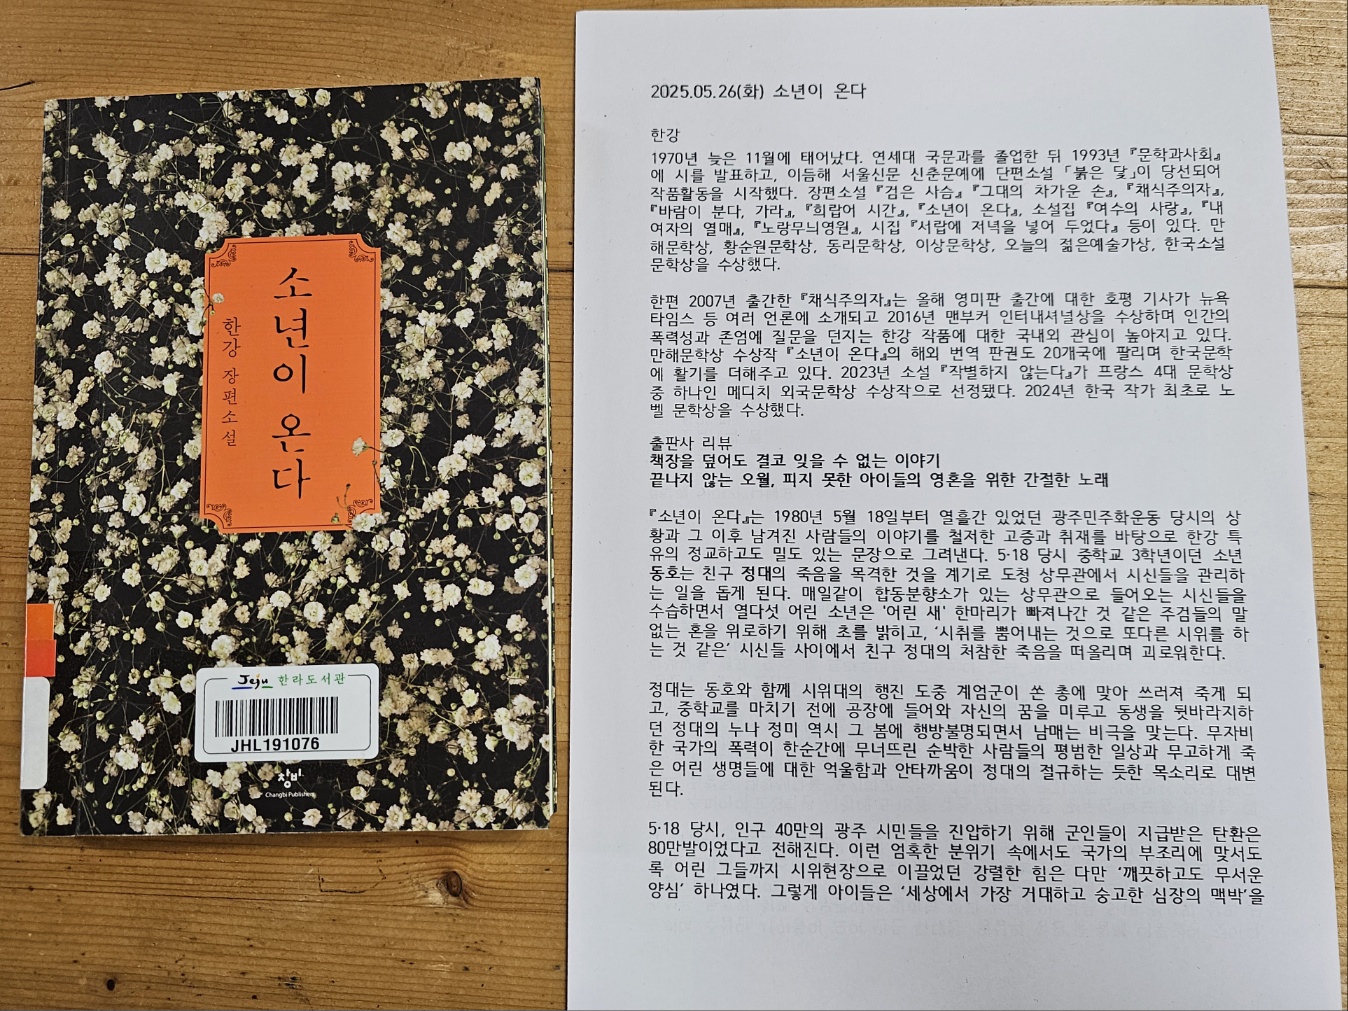 소년이 온다
한강 장편소설
Jeju 한라도서관
JHL191076
창비
Changbi Publishers
2025.05.26(화) 소년이 온다
한강
1970년 늦은 11월에 태어났다. 연세대 국문과를 졸업한 뒤 1993년 『문학과사회』
에 시를 발표하고, 이듬해 서울신문 신춘문예에 단편소설 「붉은 닻」이 당선되어
작품활동을 시작했다. 장편소설 『검은 사슴』 『그대의 차가운 손』, 『채식주의자』,
『바람이 분다, 가라』, 『희랍어 시간』, 『소년이 온다』, 소설집 『여수의 사랑』, 『내
여자의 열매』, 『노랑무늬영원』, 시집 『서랍에 저녁을 넣어 두었다』 등이 있다. 만
해문학상, 황순원문학상, 동리문학상, 이상문학상, 오늘의 젊은예술가상, 한국소설
문학상을 수상했다.
한편 2007년 출간한 『채식주의자』는 올해 영미판 출간에 대한 호평 기사가 뉴욕
타임스 등 여러 언론에 소개되고 2016년 맨부커 인터내셔널상을 수상하며 인간의
폭력성과 존엄에 질문을 던지는 한강 작품에 대한 국내외 관심이 높아지고 있다.
만해문학상 수상작 『소년이 온다』의 해외 번역 판권도 20개국에 팔리며 한국문학
에 활기를 더해주고 있다. 2023년 소설 『작별하지 않는다』가 프랑스 4대 문학상
중 하나인 메디치 외국문학상 수상작으로 선정됐다. 2024년 한국 작가 최초로 노
벨 문학상을 수상했다.
출판사 리뷰
책장을 덮어도 결코 잊을 수 없는 이야기
끝나지 않는 오월, 피지 못한 아이들의 영혼을 위한 간절한 노래
『소년이 온다』는 1980년 5월 18일부터 열흘간 있었던 광주민주화운동 당시의 상
황과 그 이후 남겨진 사람들의 이야기를 철저한 고증과 취재를 바탕으로 한강 특
유의 정교하고도 밀도 있는 문장으로 그려낸다. 5·18 당시 중학교 3학년이던 소년
동호는 친구 정대의 죽음을 목격한 것을 계기로 도청 상무관에서 시신들을 관리하
는 일을 돕게 된다. 매일같이 합동분향소가 있는 상무관으로 들어오는 시신들을
수습하면서 열다섯 어린 소년은 '어린 새' 한마리가 빠져나간 것 같은 주검들의 말
없는 혼을 위로하기 위해 초를 밝히고, '시취를 뿜어내는 것으로 또다른 시위를 하
는 것 같은' 시신들 사이에서 친구 정대의 처참한 죽음을 떠올리며 괴로워한다.
정대는 동호와 함께 시위대의 행진 도중 계엄군이 쏜 총에 맞아 쓰러져 죽게 되
고, 중학교를 마치기 전에 공장에 들어와 자신의 꿈을 미루고 동생을 뒷바라지하
던 정대의 누나 정미 역시 그 봄에 행방불명되면서 남매는 비극을 맞는다. 무자비
한 국가의 폭력이 한순간에 무너뜨린 순박한 사람들의 평범한 일상과 무고하게 죽
은 어린 생명들에 대한 억울함과 안타까움이 정대의 절규하는 듯한 목소리로 대변
된다.
5·18 당시, 인구 40만의 광주 시민들을 진압하기 위해 군인들이 지급받은 탄환은
80만발이었다고 전해진다. 이런 엄혹한 분위기 속에서도 국가의 부조리에 맞서도
록 어린 그들까지 시위현장으로 이끌었던 강렬한 힘은 다만 '깨끗하고도 무서운
양심' 하나였다. 그렇게 아이들은 '세상에서 가장 거대하고 숭고한 심장의 맥박'을